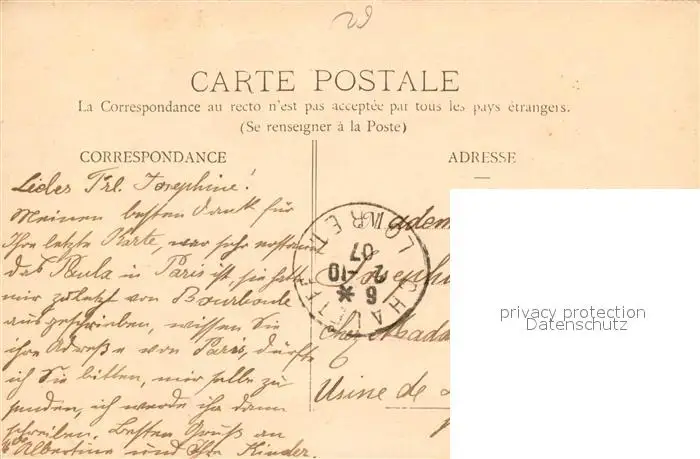 CARTE POSTALE
La Correspondance au recto n'est pas acceptée par tous les pays étrangers.
(Se renseigner à la Poste)
CORRESPONDANCE
Liebes Frl. Josephine!
Meinen besten Dank für
Ihre letzte Karte, war sehr erstaunt
das Paula in Paris ist, sie hatte
mir zuletzt von Bourboule
ausgeschrieben, wissen Sie
ihre Adresse von Paris, dürfte
ich Sie bitten, mir selbe zu
senden, ich werde ihr dann
schreiben. Besten Gruß an
Albertine und Ihre Kinder.
ADRESSE
Madem
Joseph
chez Madam
6
Usine de
LOIRET
6 * 2-10 07
privacy protection
Datenschutz